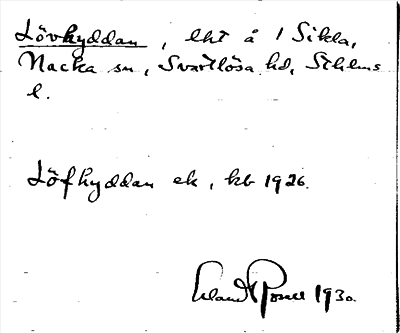 Lövhyddan, lht å 1 Sikla,
Nacka sn, Svartlösa hd, Sthlms
l.
Löfhyddan ek, kb 1926.
Erland Rosell 1930.